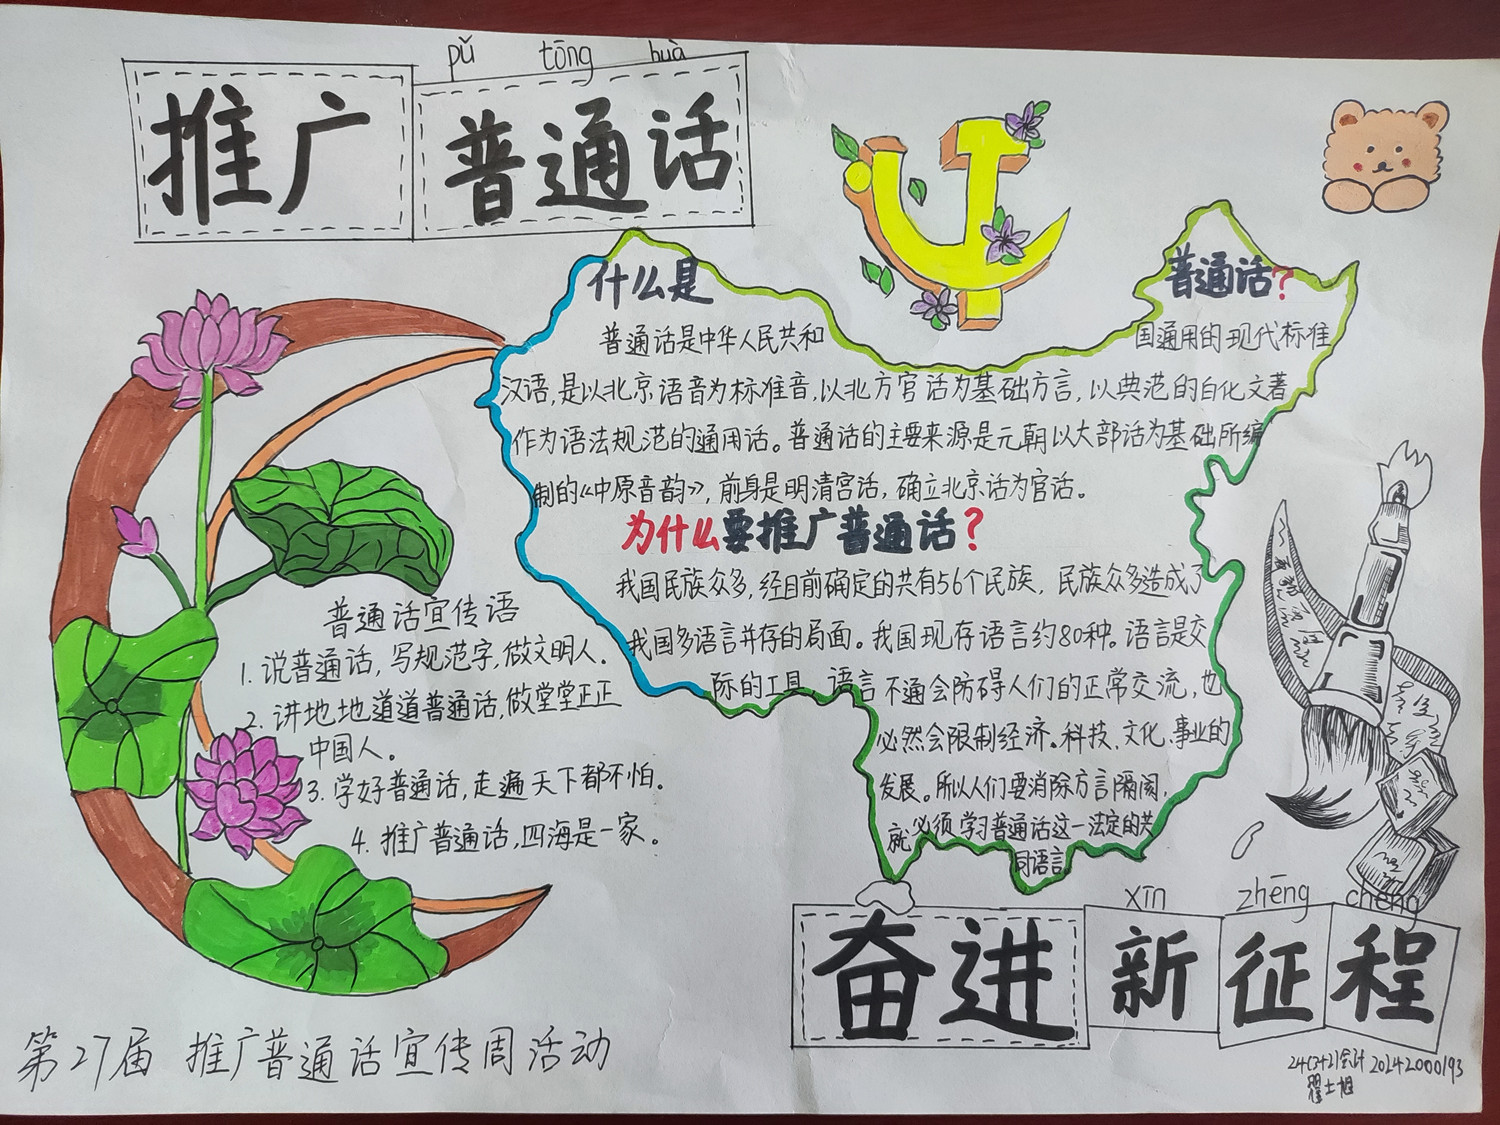 pǔ tōng huà
推广普通话
什么是普通话?
普通话是中华人民共和国通用的现代标准
汉语,是以北京语音为标准音,以北方官话为基础方言,以典范的白化文著
作为语法规范的通用话。普通话的主要来源是元朝以大部话为基础所编
制的《中原音韵》,前身是明清官话,确立北京话为官话。
为什么要推广普通话?
我国民族众多,经目前确定的共有56个民族,民族众多造成了
我国多语言并存的局面。我国现存语言约80种。语言是交
际的工具,语言不通会防碍人们的正常交流,也
必然会限制经济、科技、文化、事业的
发展。所以人们要消除方言隔阂,
就必须学习普通话这一法定的共
同语言
普通话宣传语
1. 说普通话,写规范字,做文明人.
2. 讲地地道道普通话,做堂堂正正
中国人。
3. 学好普通话,走遍天下都不怕。
4. 推广普通话,四海是一家。
xīn zhēng chéng
奋进新征程
第27届 推广普通话宣传周活动
24(3+2)会计 20242000193